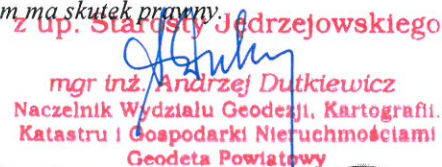 m ma skutek prawny.
z up. Starosty Jędrzejowskiego
mgr inż. Andrzej Dutkiewicz
Naczelnik Wydziału Geodezji, Kartografii.
Katastru i Gospodarki Nieruchomościami
Geodeta Powiatowy